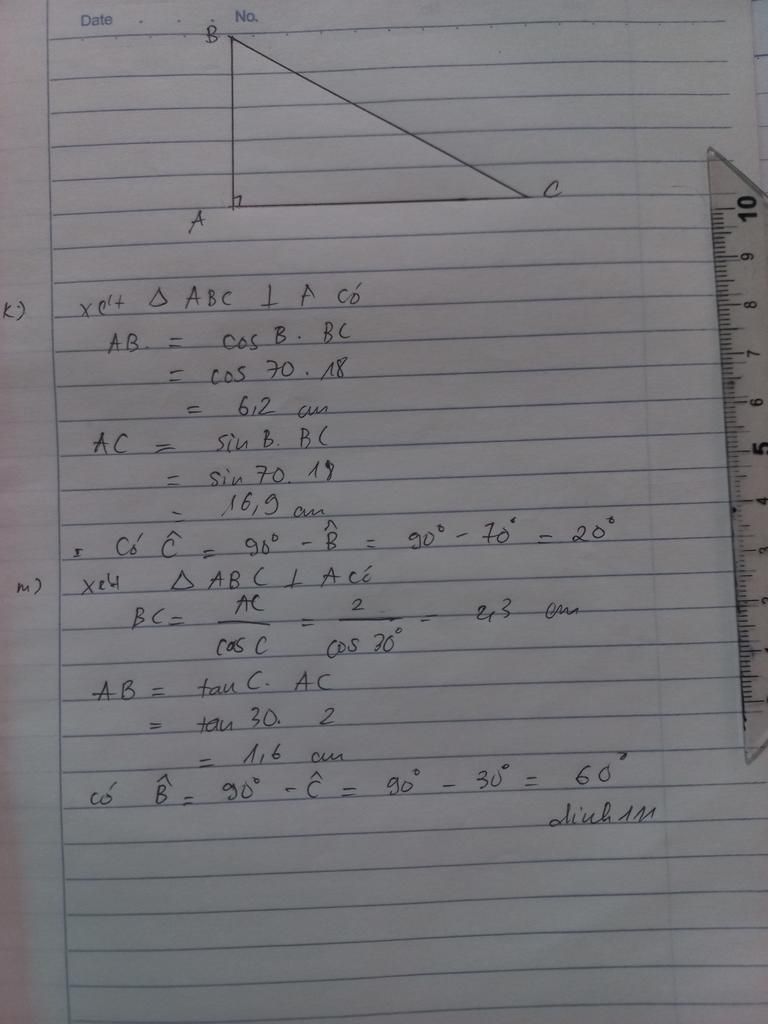 Date . . . No.
B
A
C
k) xét Δ ABC ⊥ A có
AB = cos B . BC
= cos 70 . 18
= 6,2 cm
AC = sin B. BC
= sin 70. 18
= 16,9 cm
Có Ĉ = 90° - B̂ = 90° - 70° = 20°
m) xét Δ ABC ⊥ A có
BC = AC / cos C = 2 / cos 30° = 2,3 cm
AB = tan C. AC
= tan 30. 2
= 1,6 cm
có B̂ = 90° - Ĉ = 90° - 30° = 60°
10
9
8
7
6
5
4
3
2
1